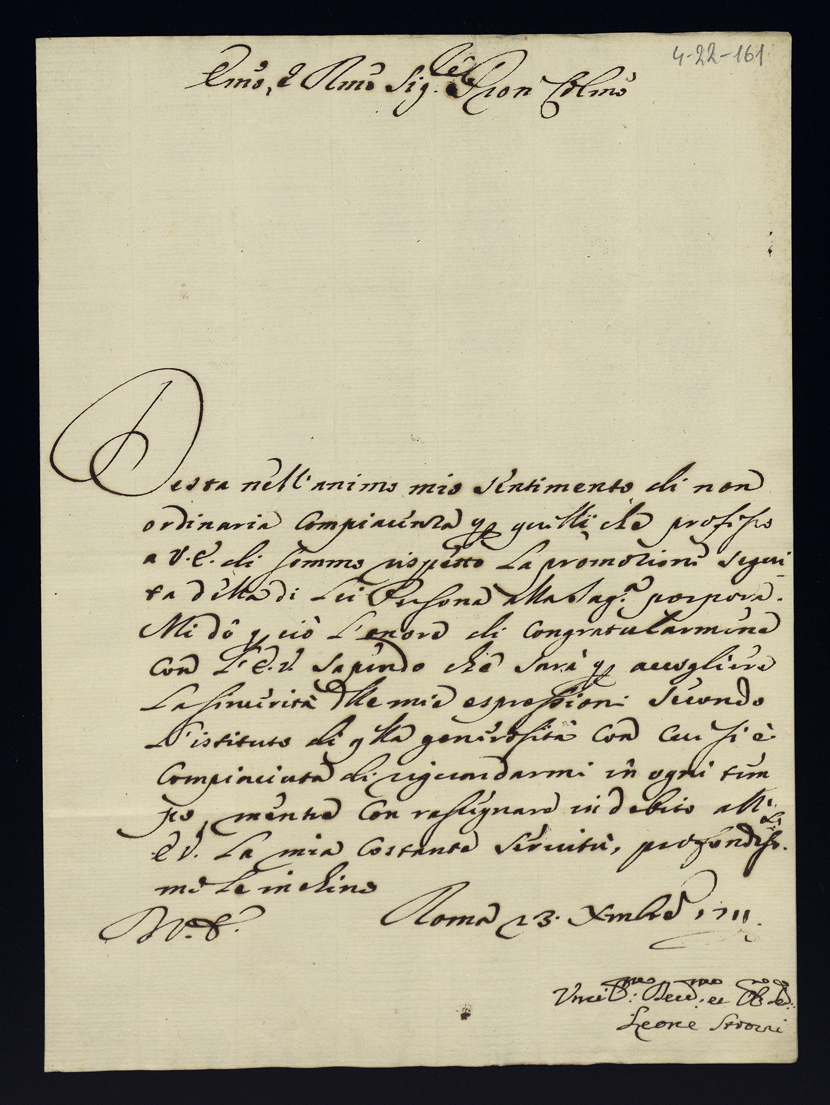 4-22-161
Emo, e Rmo Sig.re Pron Colmo
Desta nell'animo mio sentimento di non
ordinaria compiacenza p quelli che professo
a V.E. di sommo rispetto la promozione segui-
ta della di Lei Persona alla Sag.a porpora.
Mi dò p ciò l'onore di congratularmene
con l'E.V. sapendo che sarà p accogliere
la sincerità delle mie espressioni secondo
l'istituto di qlla generosità con cui si è
compiaciuta di riguardarmi in ogni tem
po, mentre con rassegnare in debito all'
E.V. la mia costante servitù, profondiss.
me le inchino
Roma 23. Xmbre 1711.
Leone Strozzi